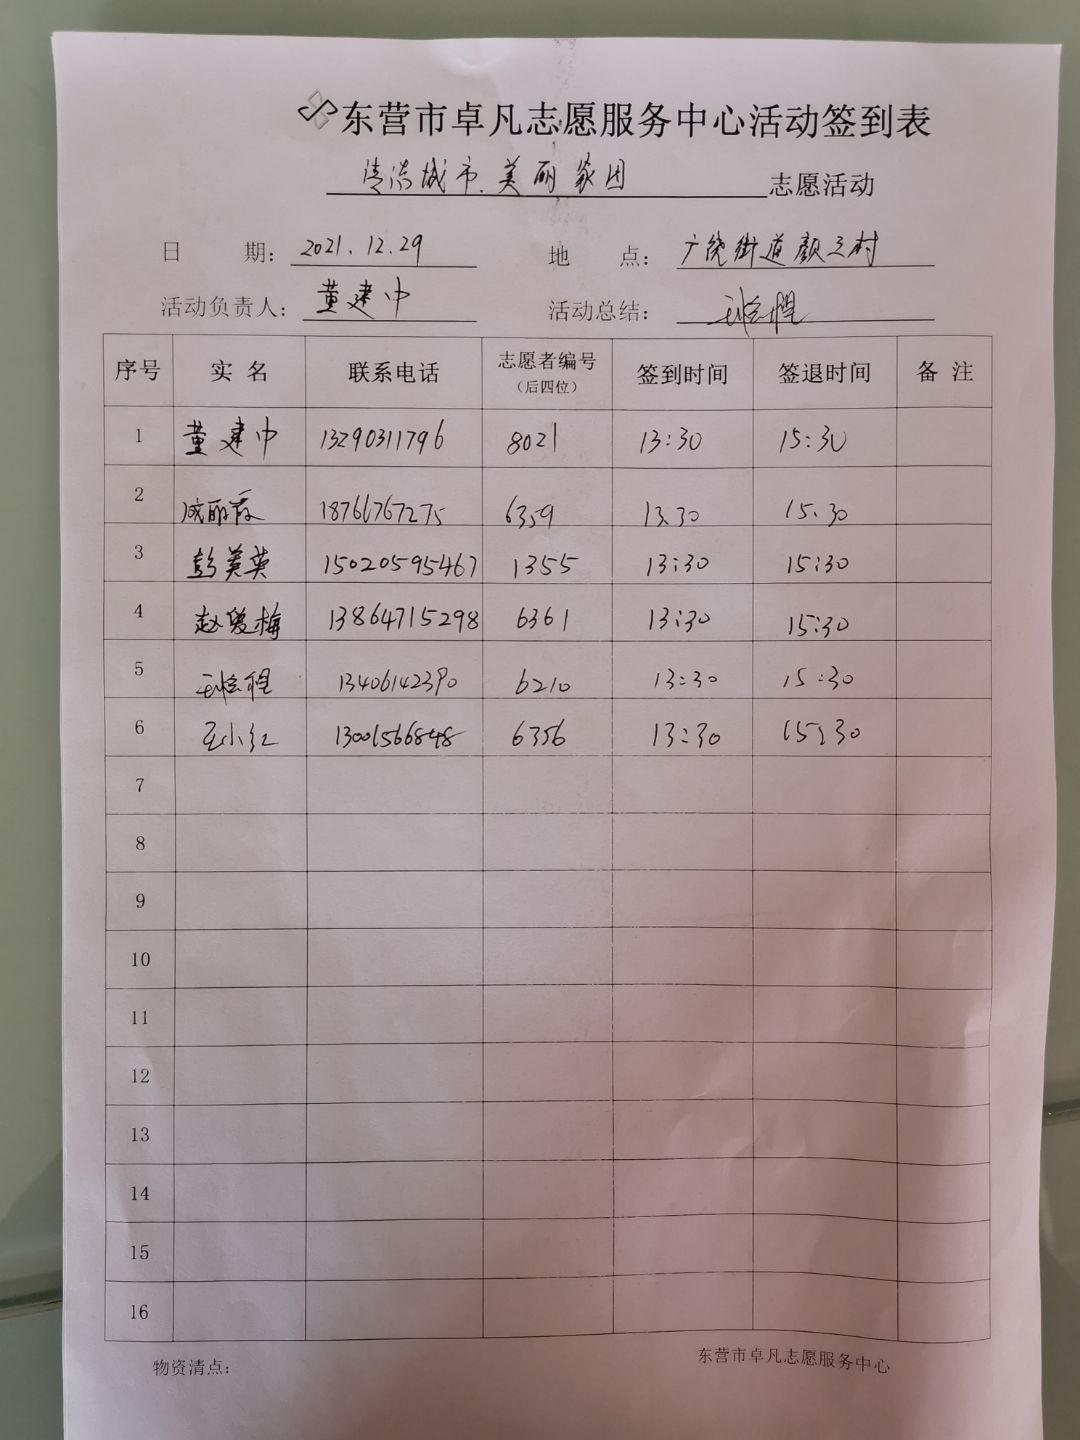 东营市卓凡志愿服务中心活动签到表
清洁城市、美丽家园 志愿活动
日 期: 2021.12.29 地 点: 广饶街道颜之村
活动负责人: 董建中 活动总结:
序号 实名 联系电话 志愿者编号(后四位) 签到时间 签退时间 备注
1 董建中 13290311796 8021 13:30 15:30
2 成丽霞 18766767275 6359 13.30 15.30
3 彭美英 15020595467 1355 13:30 15:30
4 赵爱梅 13864715298 6361 13:30 15:30
5 13406142390 6210 13:30 15:30
6 王小红 13001566848 6356 13:30 15:30
7
8
9
10
11
12
13
14
15
16
物资清点: 东营市卓凡志愿服务中心